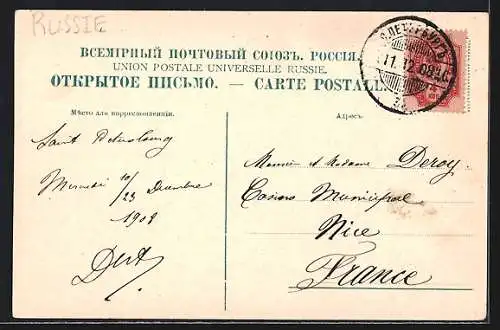 RUSSIE
ВСЕМІРНЫЙ ПОЧТОВЫЙ СОЮЗЪ. РОССІЯ.
UNION POSTALE UNIVERSELLE RUSSIE.
ОТКРЫТОЕ ПИСЬМО. — CARTE POSTALE.
С.ПЕТЕРБУРГЪ
11.12.08
Мѣсто для корреспонденціи.
Адресъ.
Saint Petersbourg
10/23 Décembre
1908
Monsieur et Madame Deroy.
Casino Municipal
Nice
France